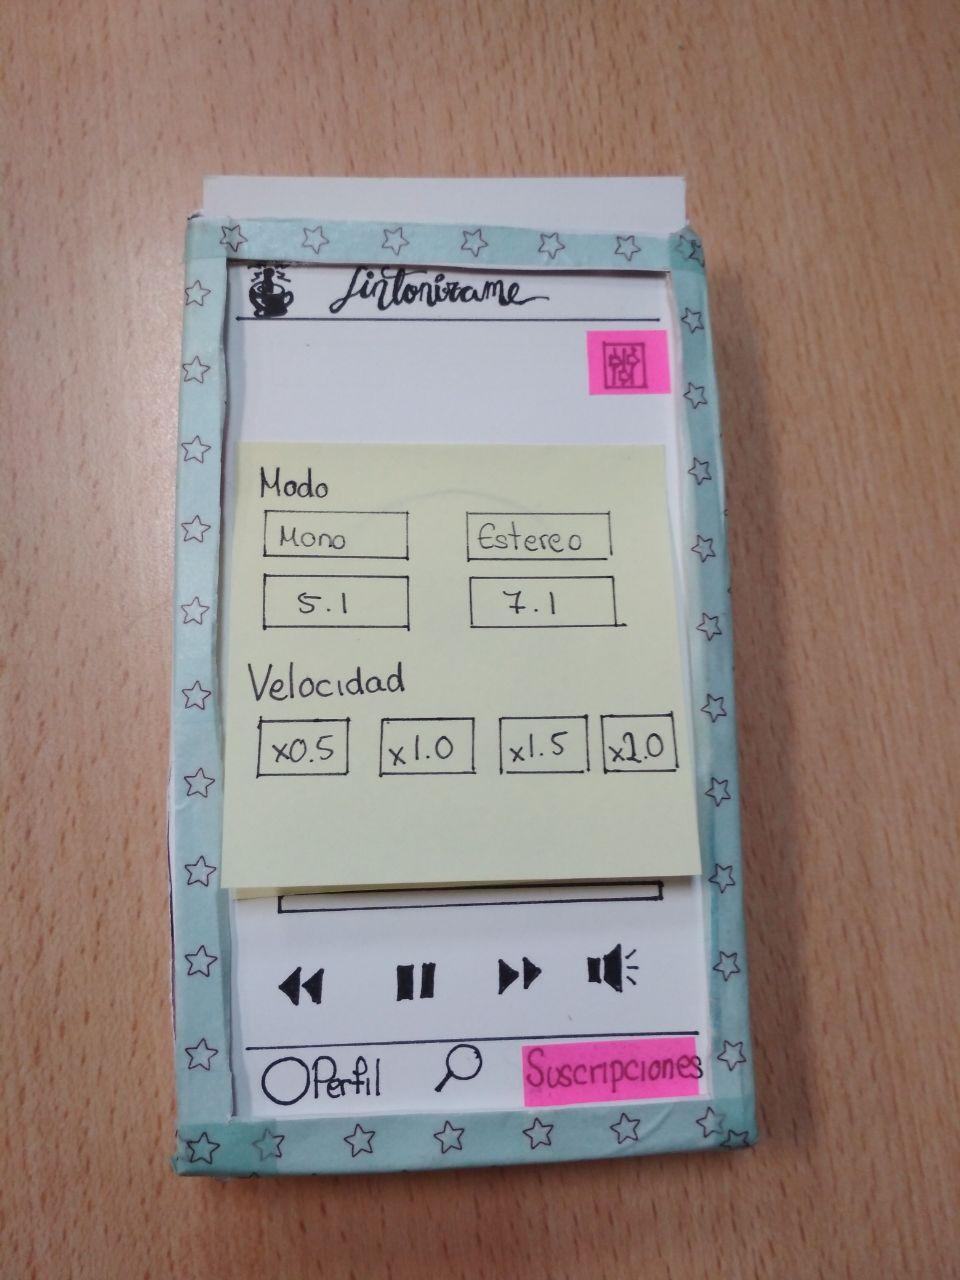 Sintonizame
Modo
Mono Estereo
5.1 7.1
Velocidad
x0.5 x1.0 x1.5 x2.0
Perfil Suscripciones